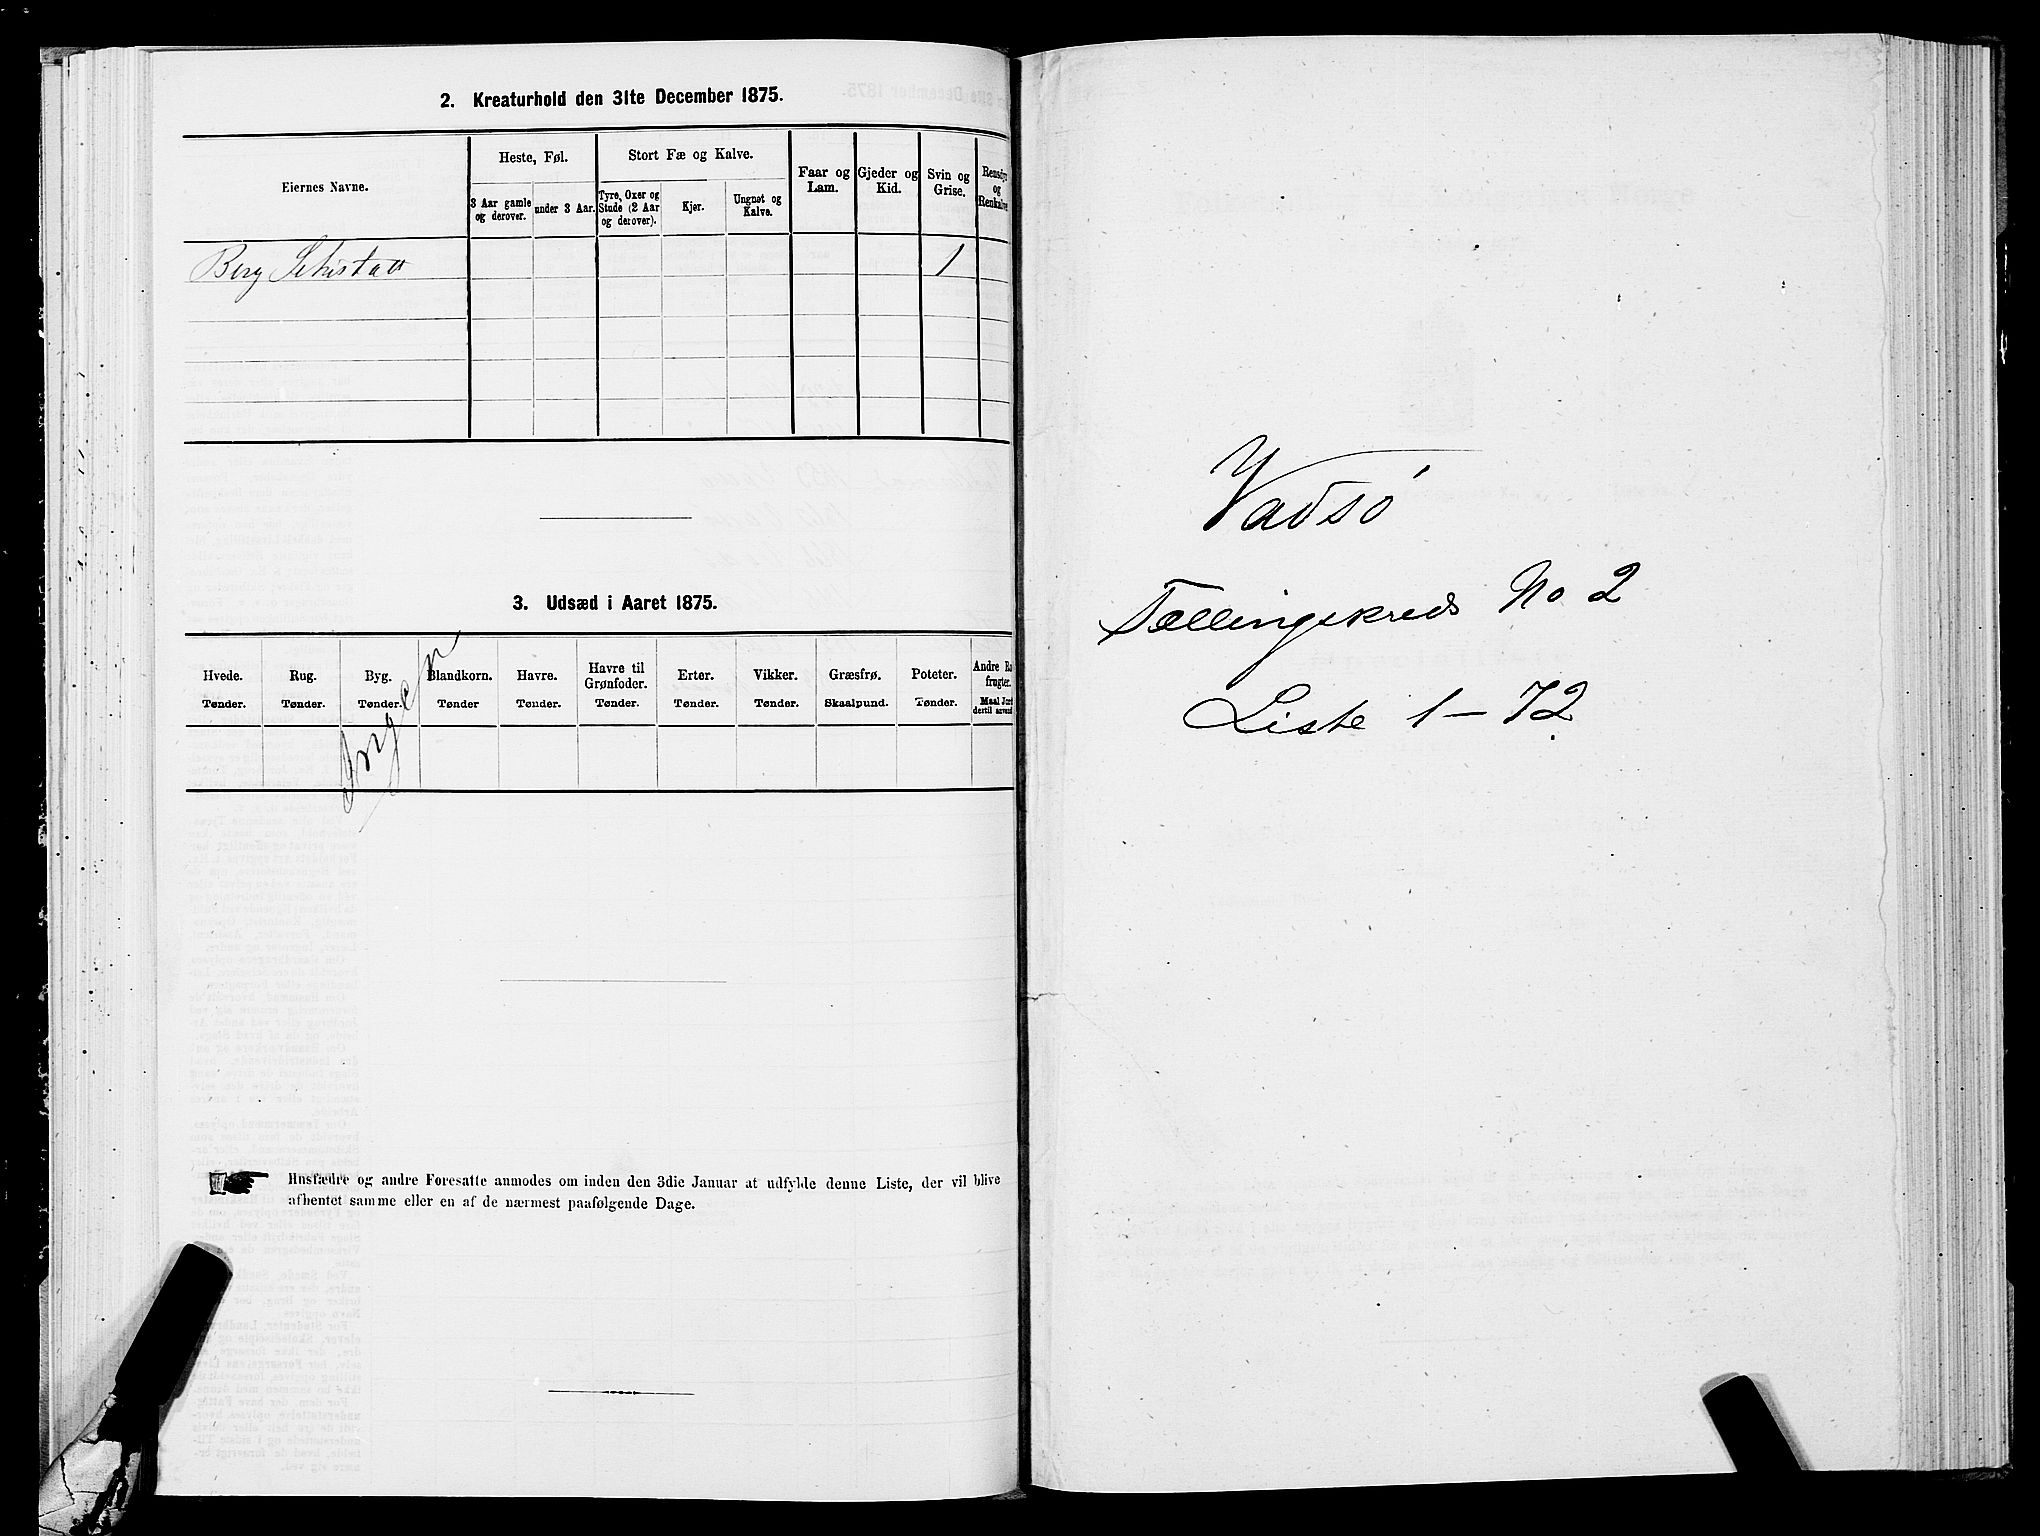 2. Kreaturhold den 31te December 1875.
Eiernes Navne.
Heste, Føl.
Stort Fæ og Kalve.
Faar og Lam.
Gjeder og Kid.
Svin og Grise.
Rensdyr og Renkalve
3 Aar gamle og derover.
under 3 Aar.
Tyre, Oxer og Stude (2 Aar og derover).
Kjør.
Ungnøt og Kalve.
Berg 1
3. Udsæd i Aaret 1875.
Hvede. Rug. Byg. Blandkorn. Havre. Havre til Grønfoder. Erter. Vikker. Græsfrø. Poteter. Andre Ro frugter.
Tønder. Tønder. Tønder. Tønder Tønder. Tønder. Tønder. Tønder. Skaalpund. Tønder. Maal Jord dertil anvendt
Ingen
Husfædre og andre Foresatte anmodes om inden den 3die Januar at udfylde denne Liste, der vil blive
afhentet samme eller en af de nærmest paafølgende Dage.
Vadsø
Tællingskreds No 2
Liste 1 - 72